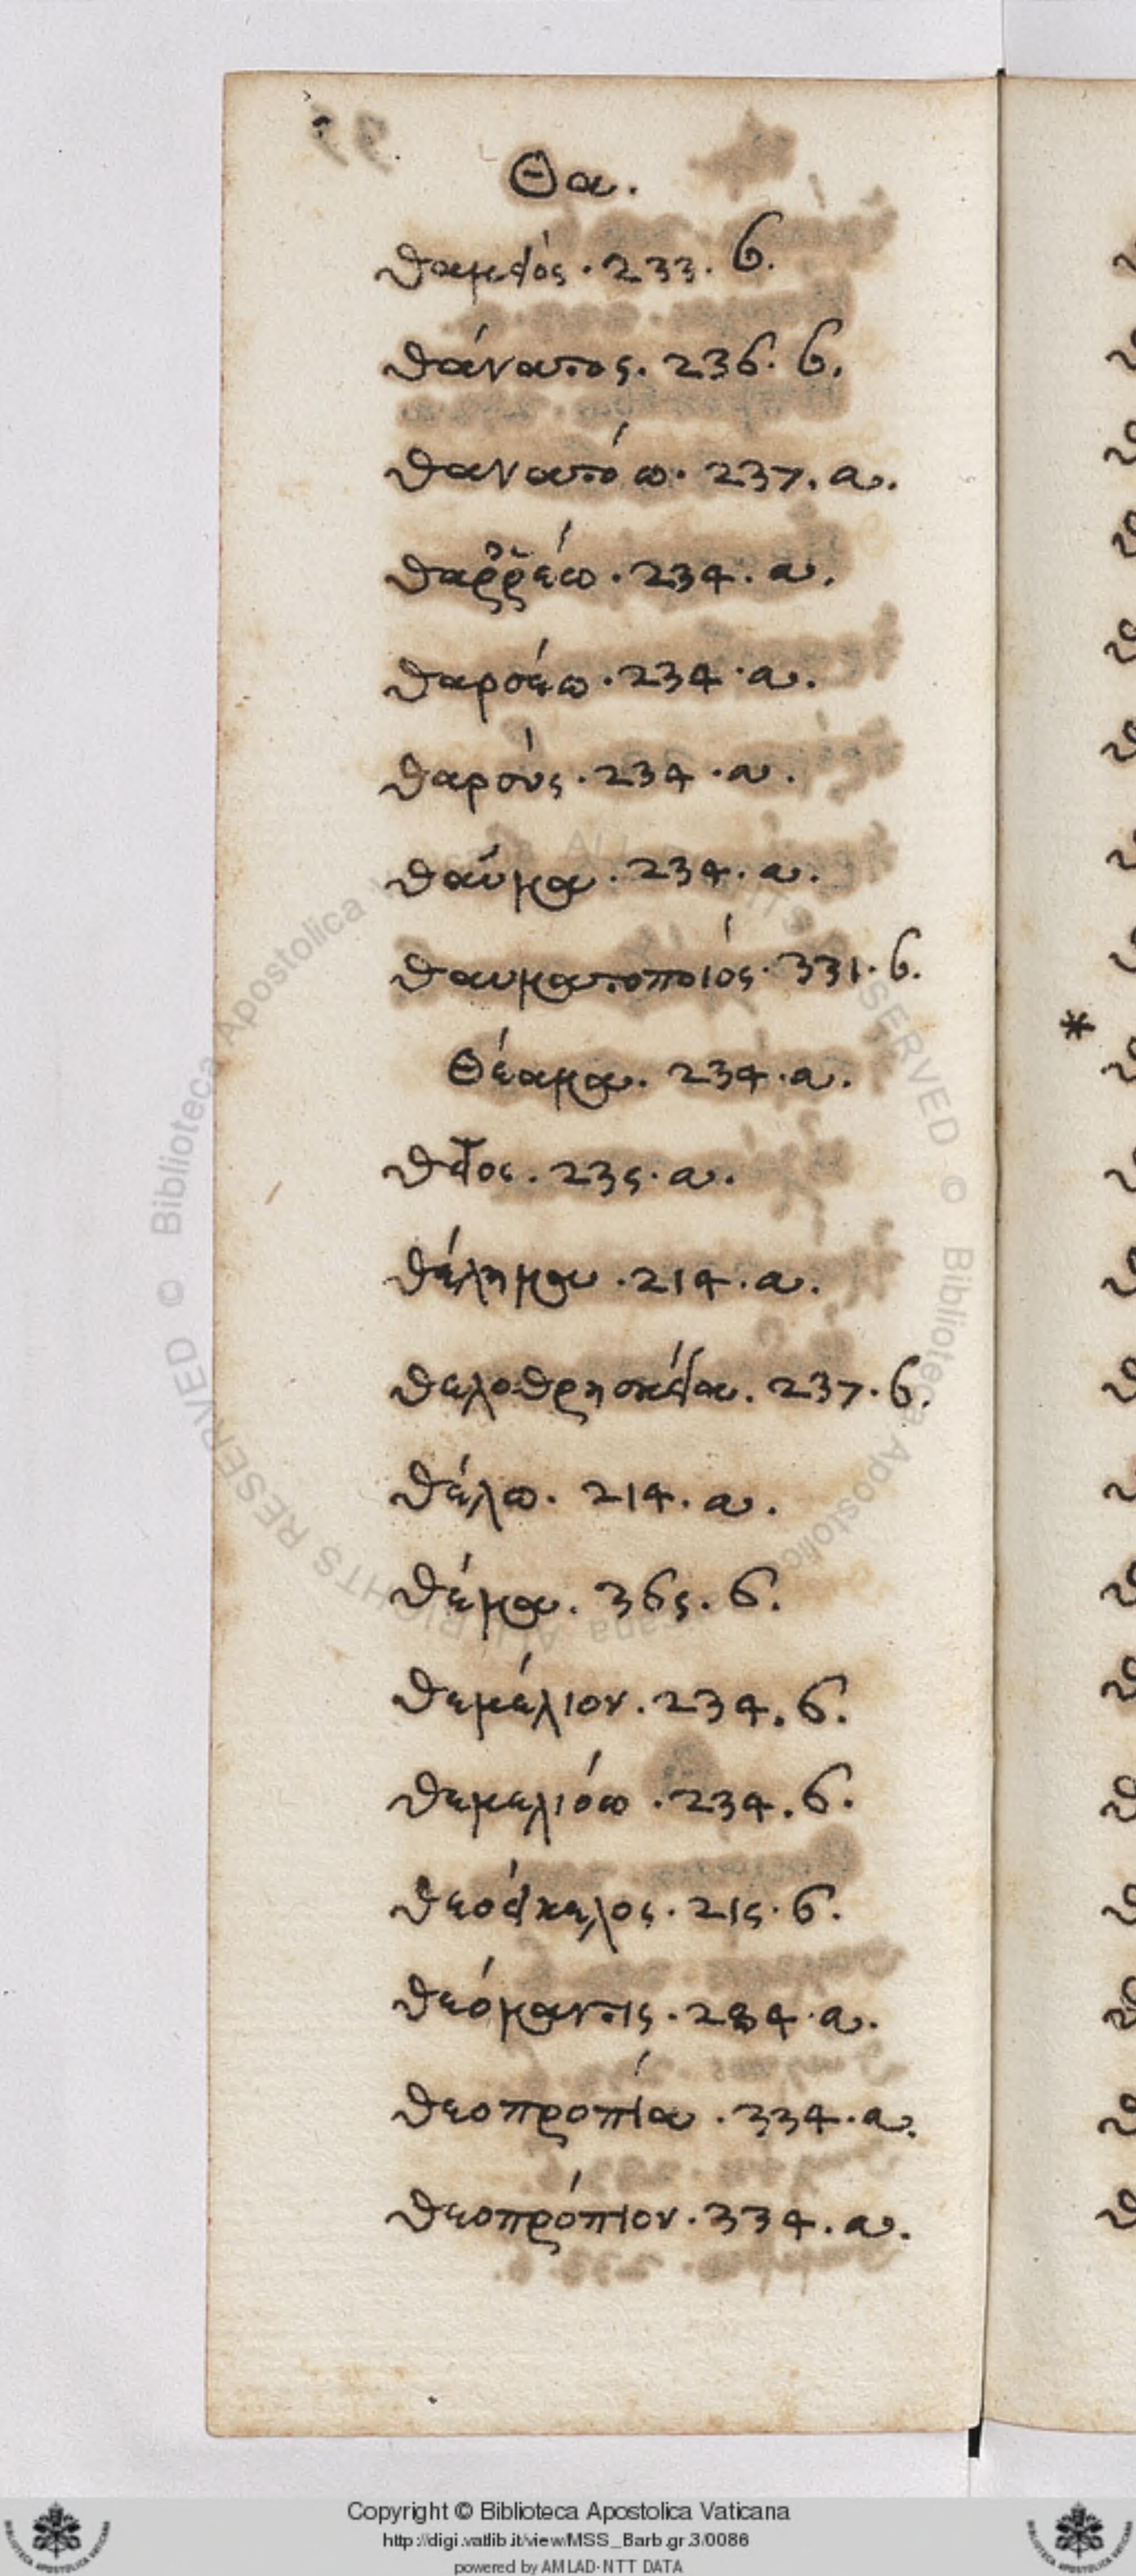 Θα.
θαμειός · 233. β.
θάνατος. 236. β.
θανατόω. 237. α.
θαῤῥέω. 234. α.
θαρσέω. 234. α.
θαρσύς. 234. α.
θαύμα. 234. α.
θαυματοποιός. 331. β.
Θέαμα. 234. α.
θεῖος. 235. α.
θέλημα. 214. α.
θελοθρησκεία. 237. β.
θέλω. 214. α.
θέμα. 365. β.
θεμέλιον. 234. β.
θεμελιόω. 234. β.
θεοείκελος. 215. β.
θεόμαντις. 284. α.
θεοπροπία. 334. α.
θεοπρόπιον. 334. α.
*
Copyright © Biblioteca Apostolica Vaticana
http://digi.vatlib.it/view/MSS_Barb.gr.3/0086
powered by AMLAD-NTT DATA